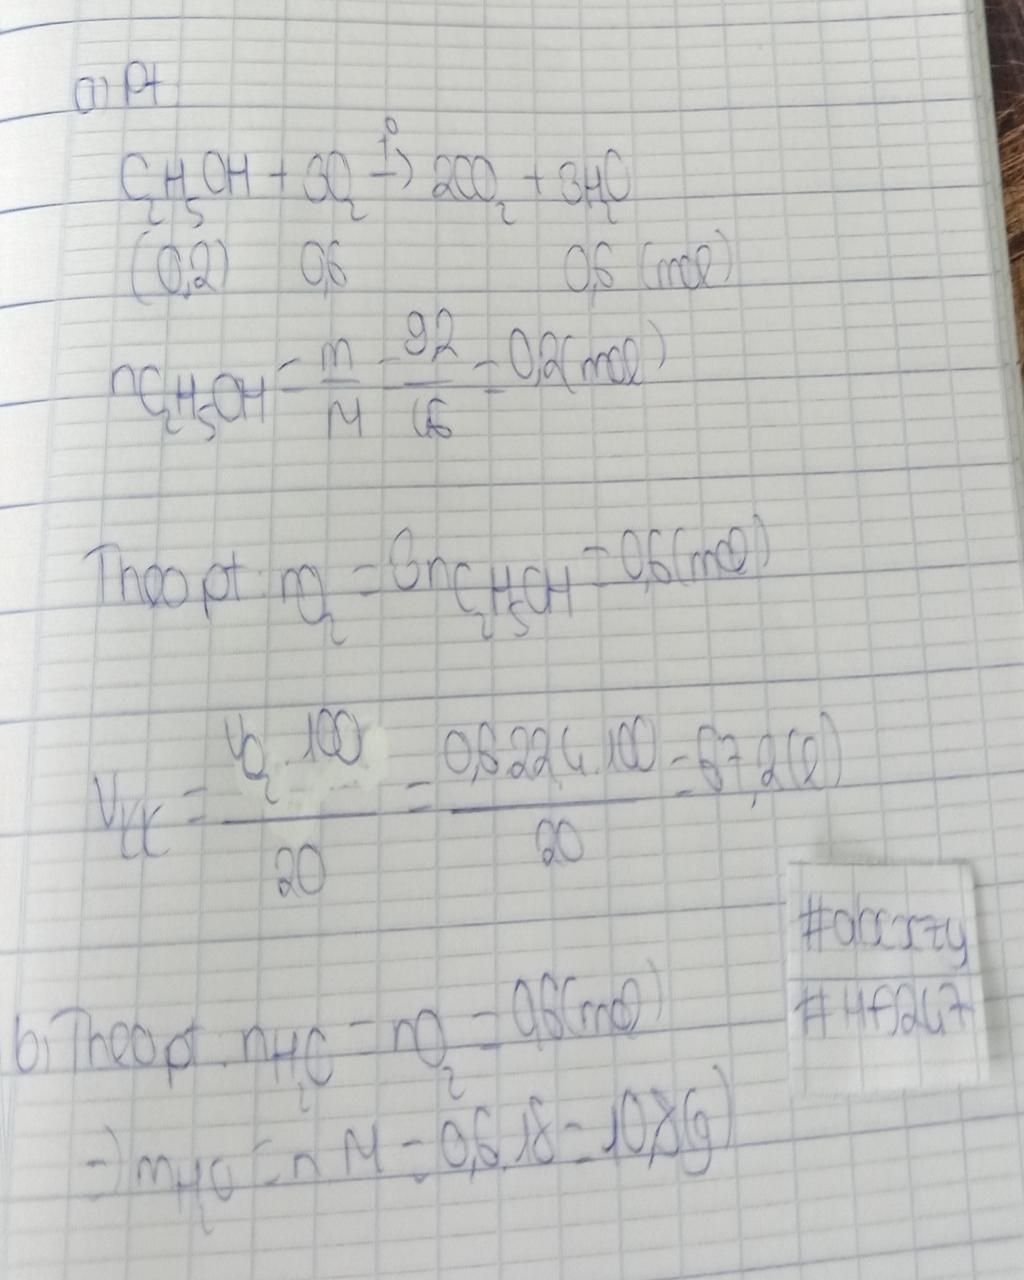 a) Pt
C2H5OH + 3O2 t°→ 2CO2 + 3H2O
(0,2) 0,6 0,6 (mol)
nC2H5OH = m/M = 9,2/46 = 0,2 (mol)
Theo pt: nO2 = 3nC2H5OH = 0,6 (mol)
VKK = VO2.100/20 = 0,6.22,4.100/20 = 67,2 (l)
#acxxzy
#4f247
b, Theo pt: nH2O = nO2 = 0,6 (mol)
=> mH2O = n.M = 0,6.18 = 10,8 (g)